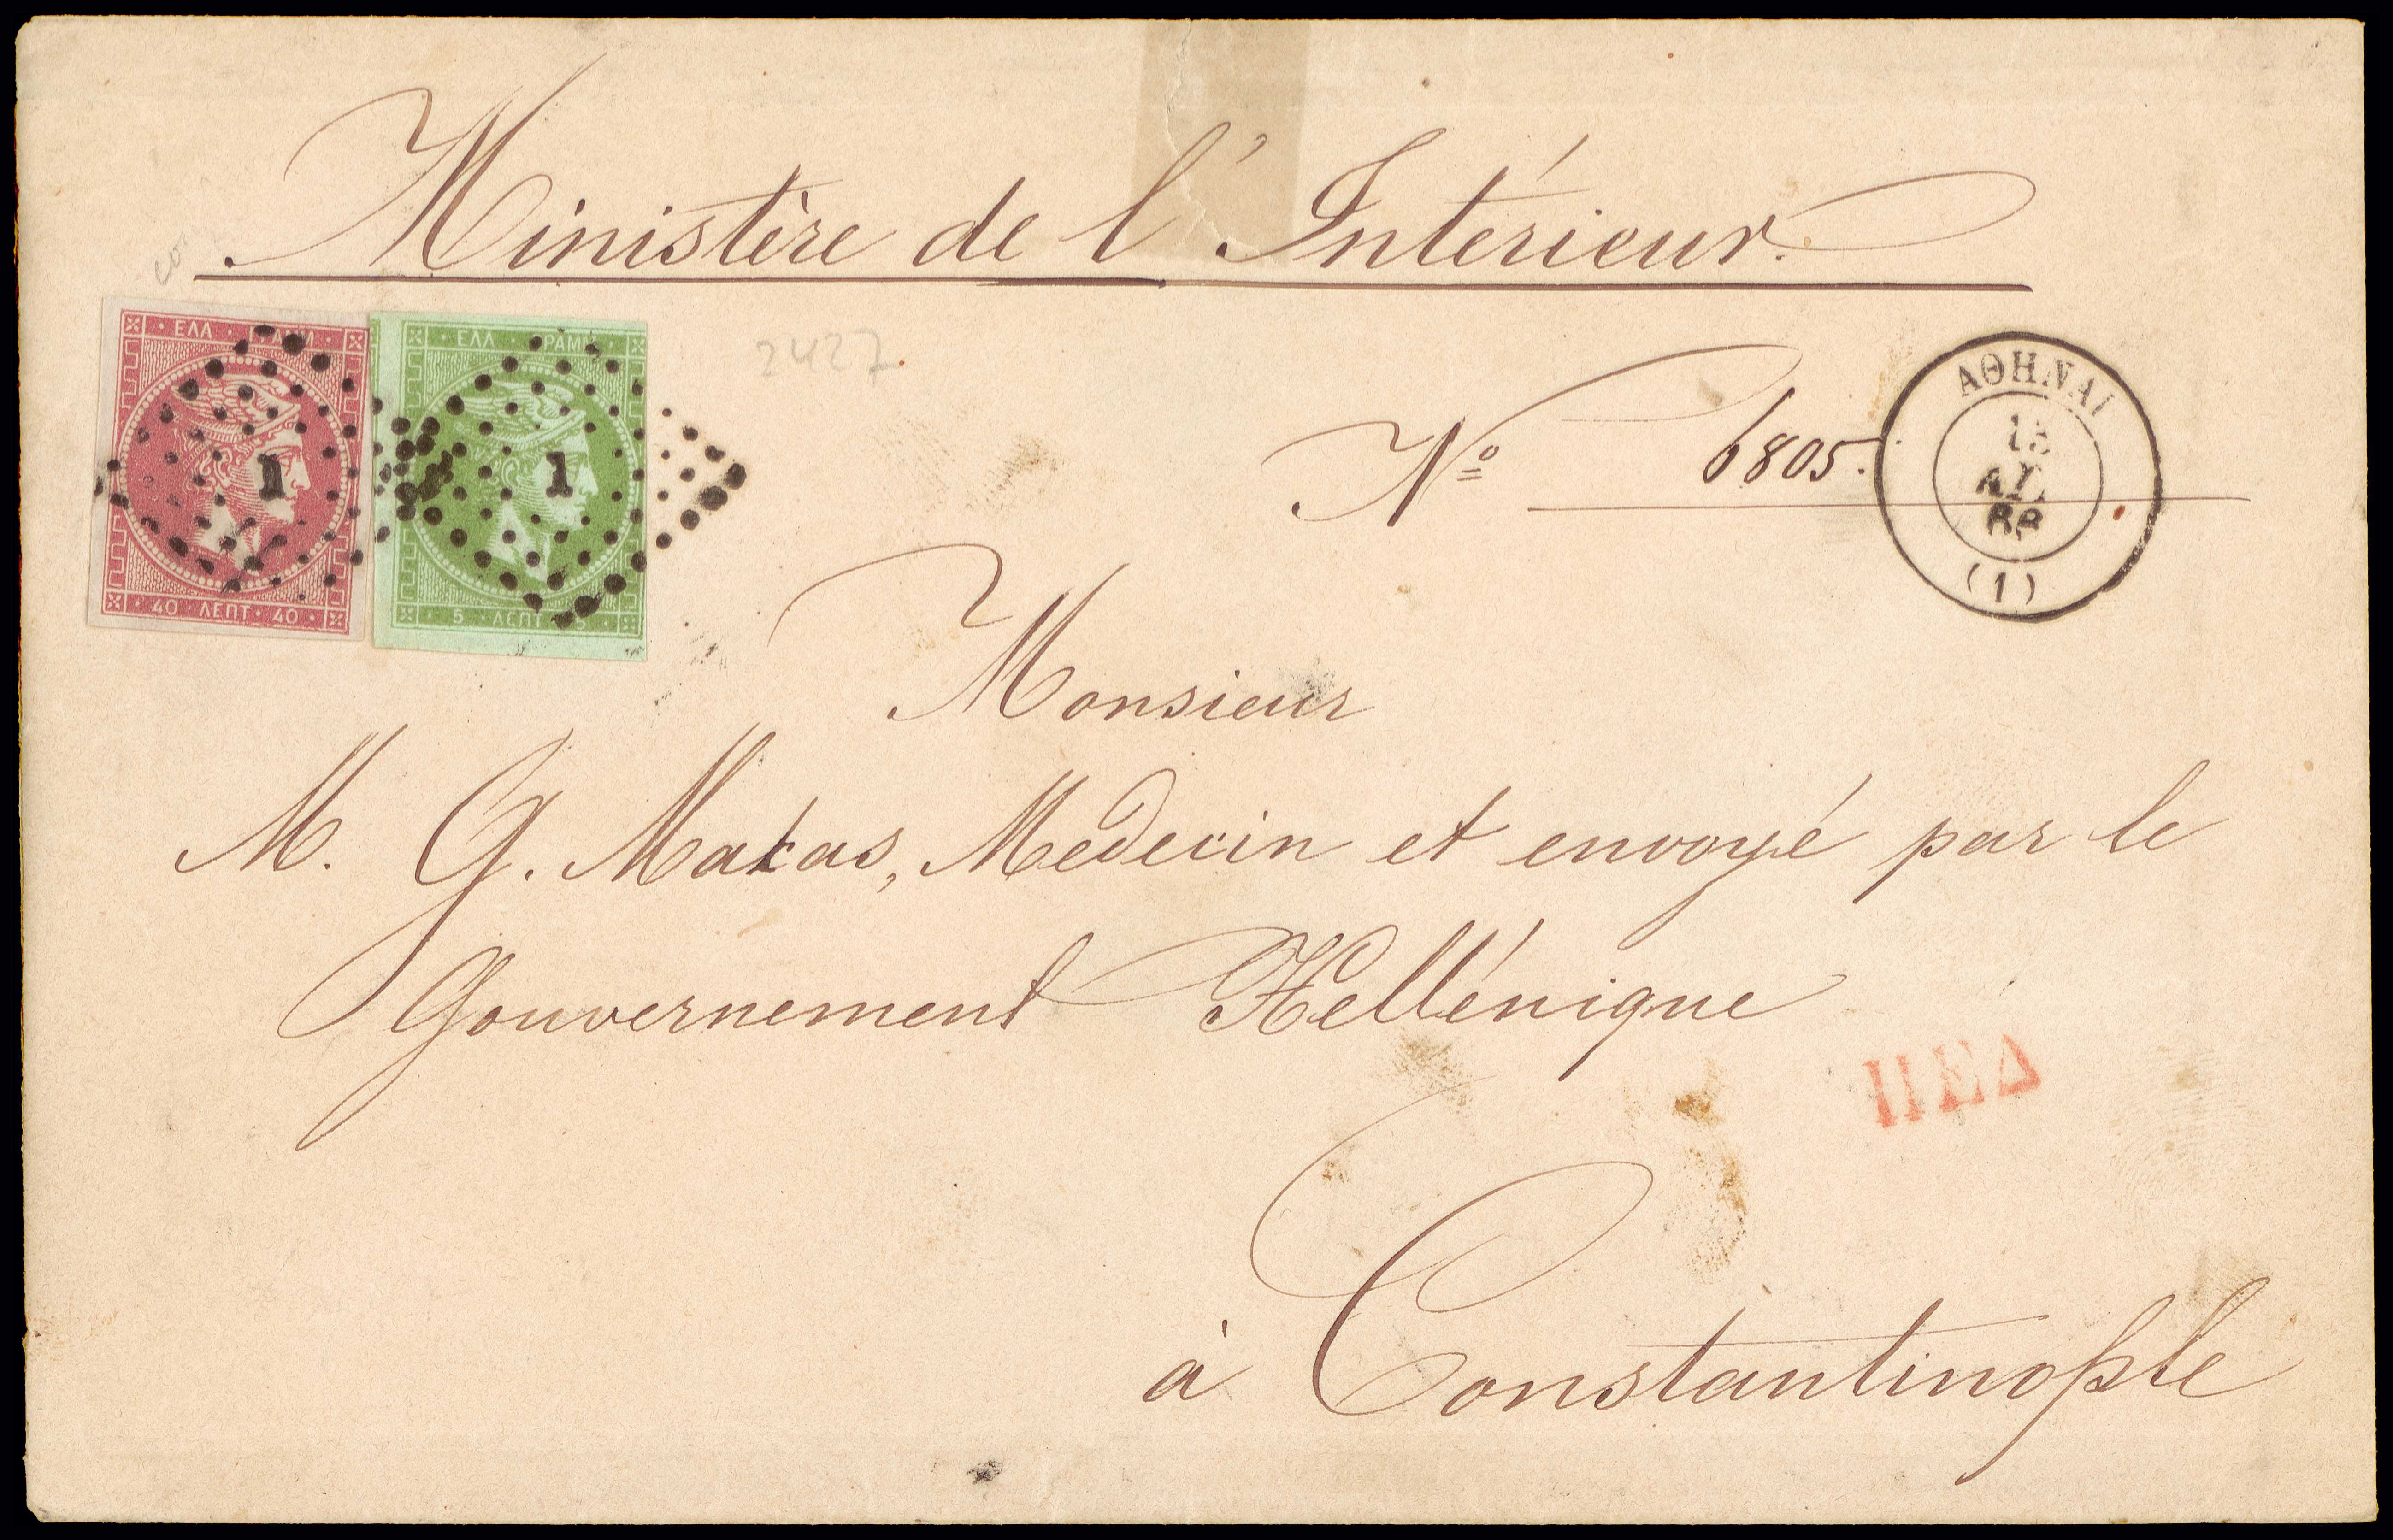 Ministère de l'Intérieur.
ΕΛΛ
40 ΛΕΠΤ 40
ΕΛΛ ΡΑΜΜ
5 ΛΕΠΤ 5
1
1
2427
Nº 6805.
ΑΘΗΝΑΙ
(1)
Monsieur
M. G. Makas, Medecin et envoyé par le
Gouvernement Hellénique
ΠΕΔ
à Constantinople